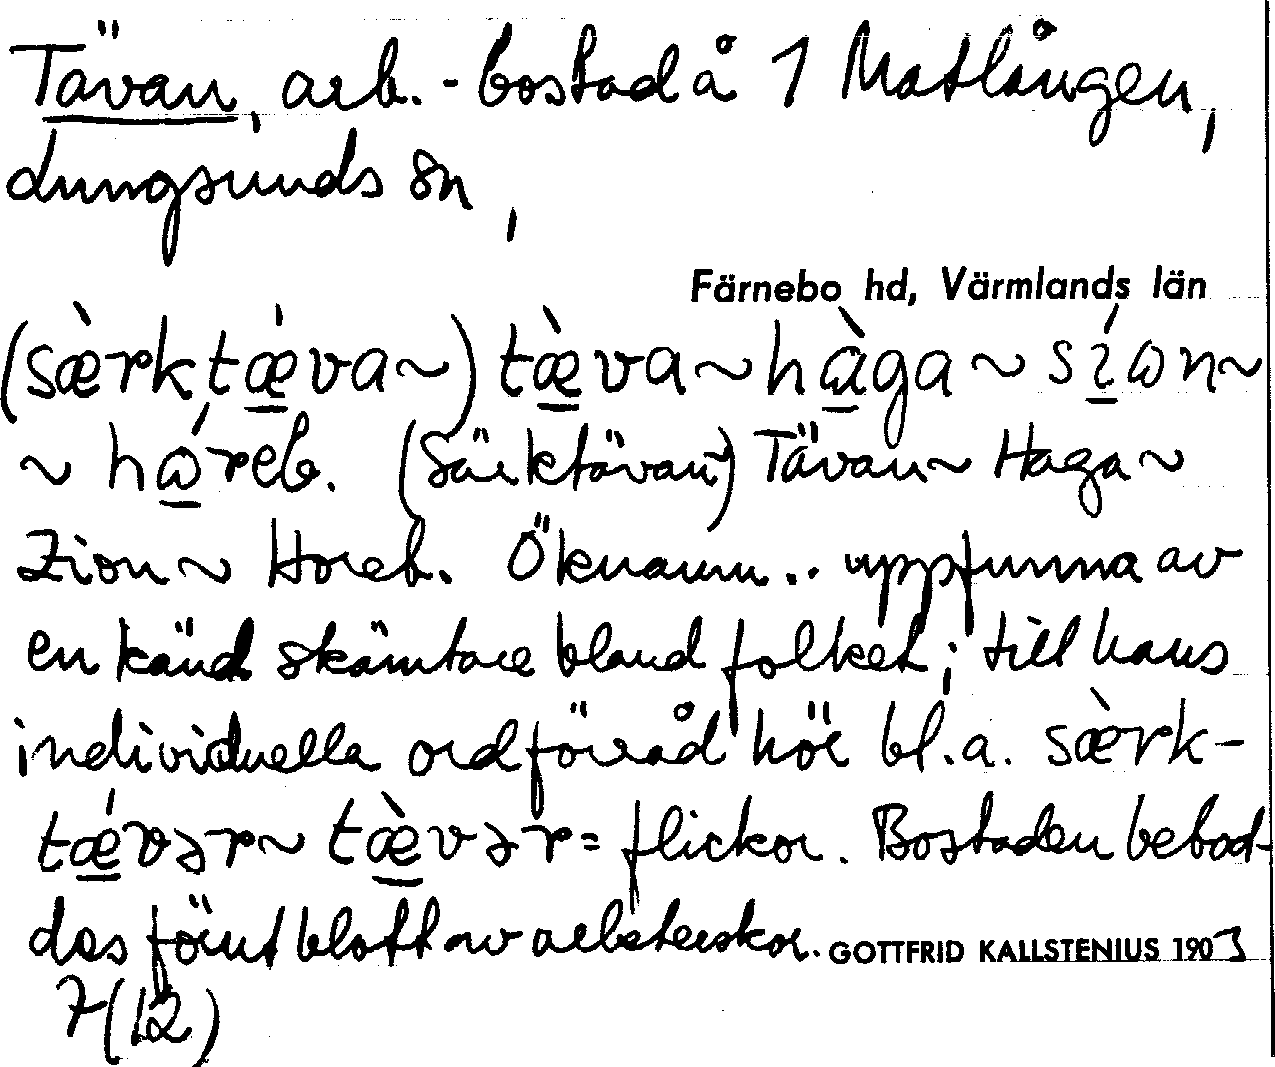 Tävan, arb.-bostad å 1 Matlången,
Lungsunds sn,
Färnebo hd, Värmlands län
(sæ̀rktǽva~) tæ̀va~hàga~síωn~
~hώreb. (Särktävan~) Tävan~ Haga~
Zion~ Horeb. Öknamn.. uppfunna av
en känd skämtare bland folket; till hans
individuella ordförråd hör bl.a. sæ̀rk-
tǽvər~ tæ̀vər = flickor. Bostaden bebod-
des först blott av arbeterskor. GOTTFRID KALLSTENIUS 1903
7(12)